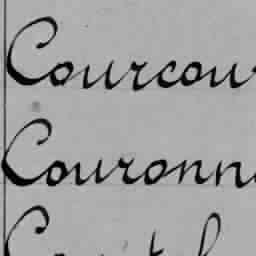 Courcour
Couronn